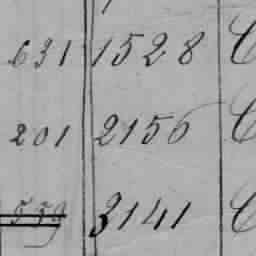 631 1528 C
201 2156 C
559 3141 C